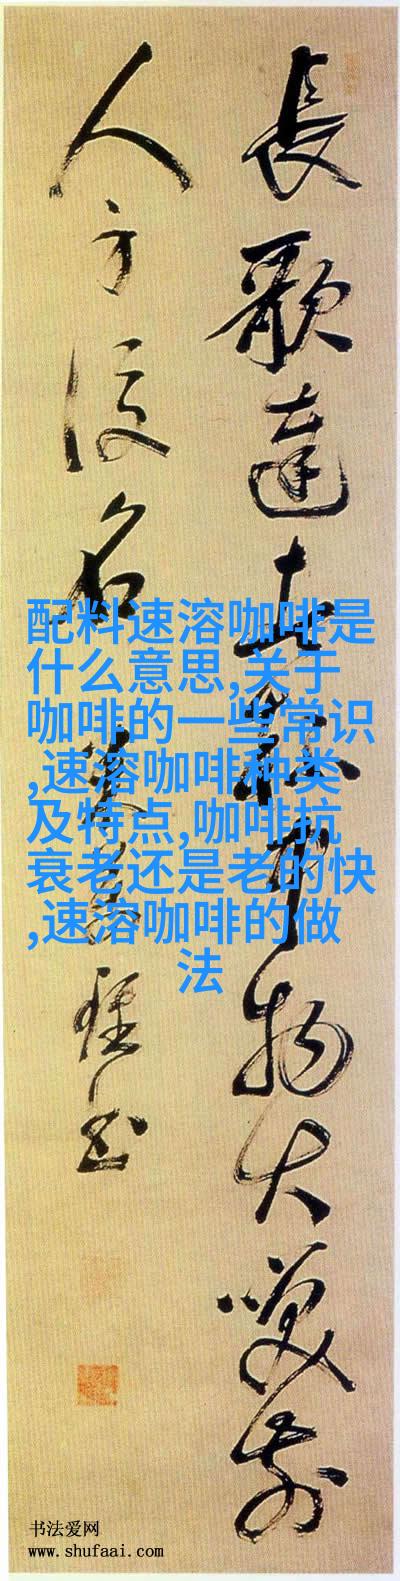 長歌達者雜神物大嘆前
人方後名
配料速溶咖啡是
什么意思,关于
咖啡的一些常识
,速溶咖啡种类
及特点,咖啡抗
衰老还是老的快
,速溶咖啡的做
法
书法爱网
www.shufaai.com